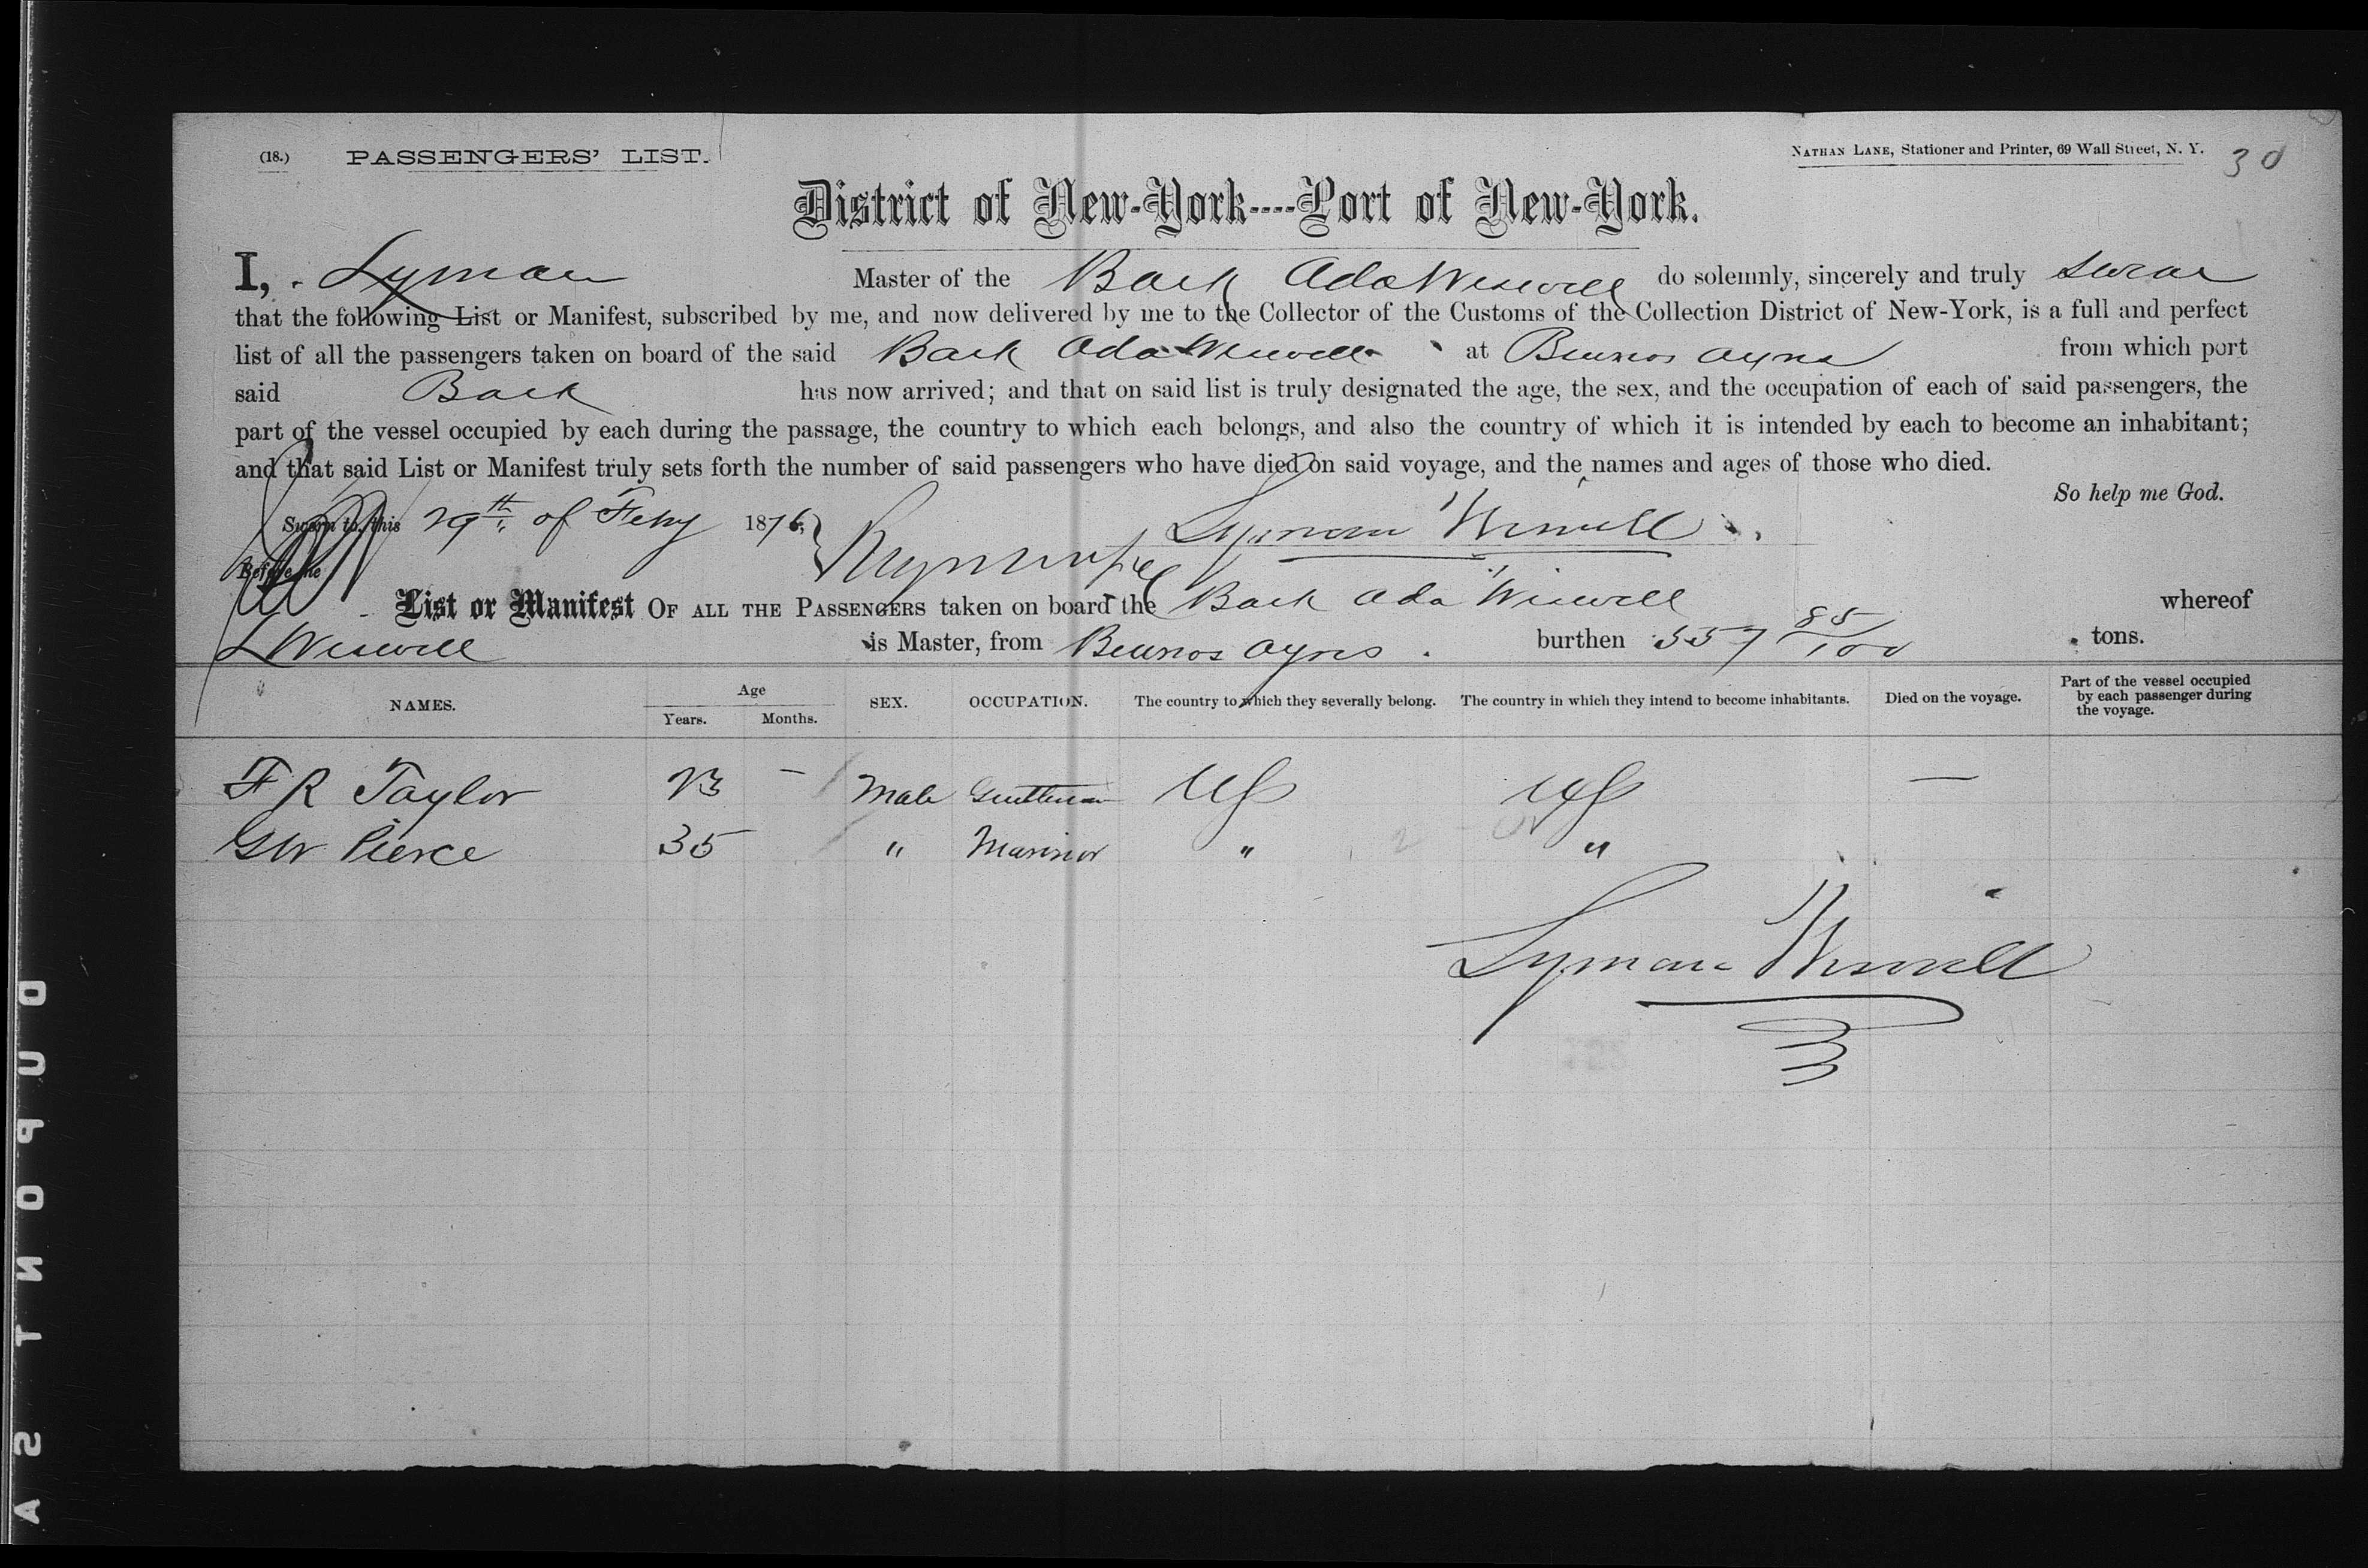 (18.) PASSENGERS' LIST.
NATHAN LANE, Stationer and Printer, 69 Wall Street, N. Y. 30
District of New-York----Port of New-York.
I, Lyman Master of the Bark Ada Wiswell do solemnly, sincerely and truly swear
that the following List or Manifest, subscribed by me, and now delivered by me to the Collector of the Customs of the Collection District of New-York, is a full and perfect
list of all the passengers taken on board of the said Bark Ada Wiswell at Buenos Ayres from which port
said Bark has now arrived; and that on said list is truly designated the age, the sex, and the occupation of each of said passengers, the
part of the vessel occupied by each during the passage, the country to which each belongs, and also the country of which it is intended by each to become an inhabitant;
and that said List or Manifest truly sets forth the number of said passengers who have died on said voyage, and the names and ages of those who died.
So help me God.
Sworn to, this 29th of Feby 1876, Lyman Wiswell
Before me
List or Manifest OF ALL THE PASSENGERS taken on board the Bark Ada Wiswell whereof
L Wiswell is Master, from Buenos Ayres burthen 557 85/100 tons.
NAMES. Age Years. Months. SEX. OCCUPATION. The country to which they severally belong. The country in which they intend to become inhabitants. Died on the voyage. Part of the vessel occupied by each passenger during the voyage.
F R Taylor 23 – Male Gentleman US US —
GW Pierce 35 " Marinor " "
Lyman Wiswell
DUPONT SA